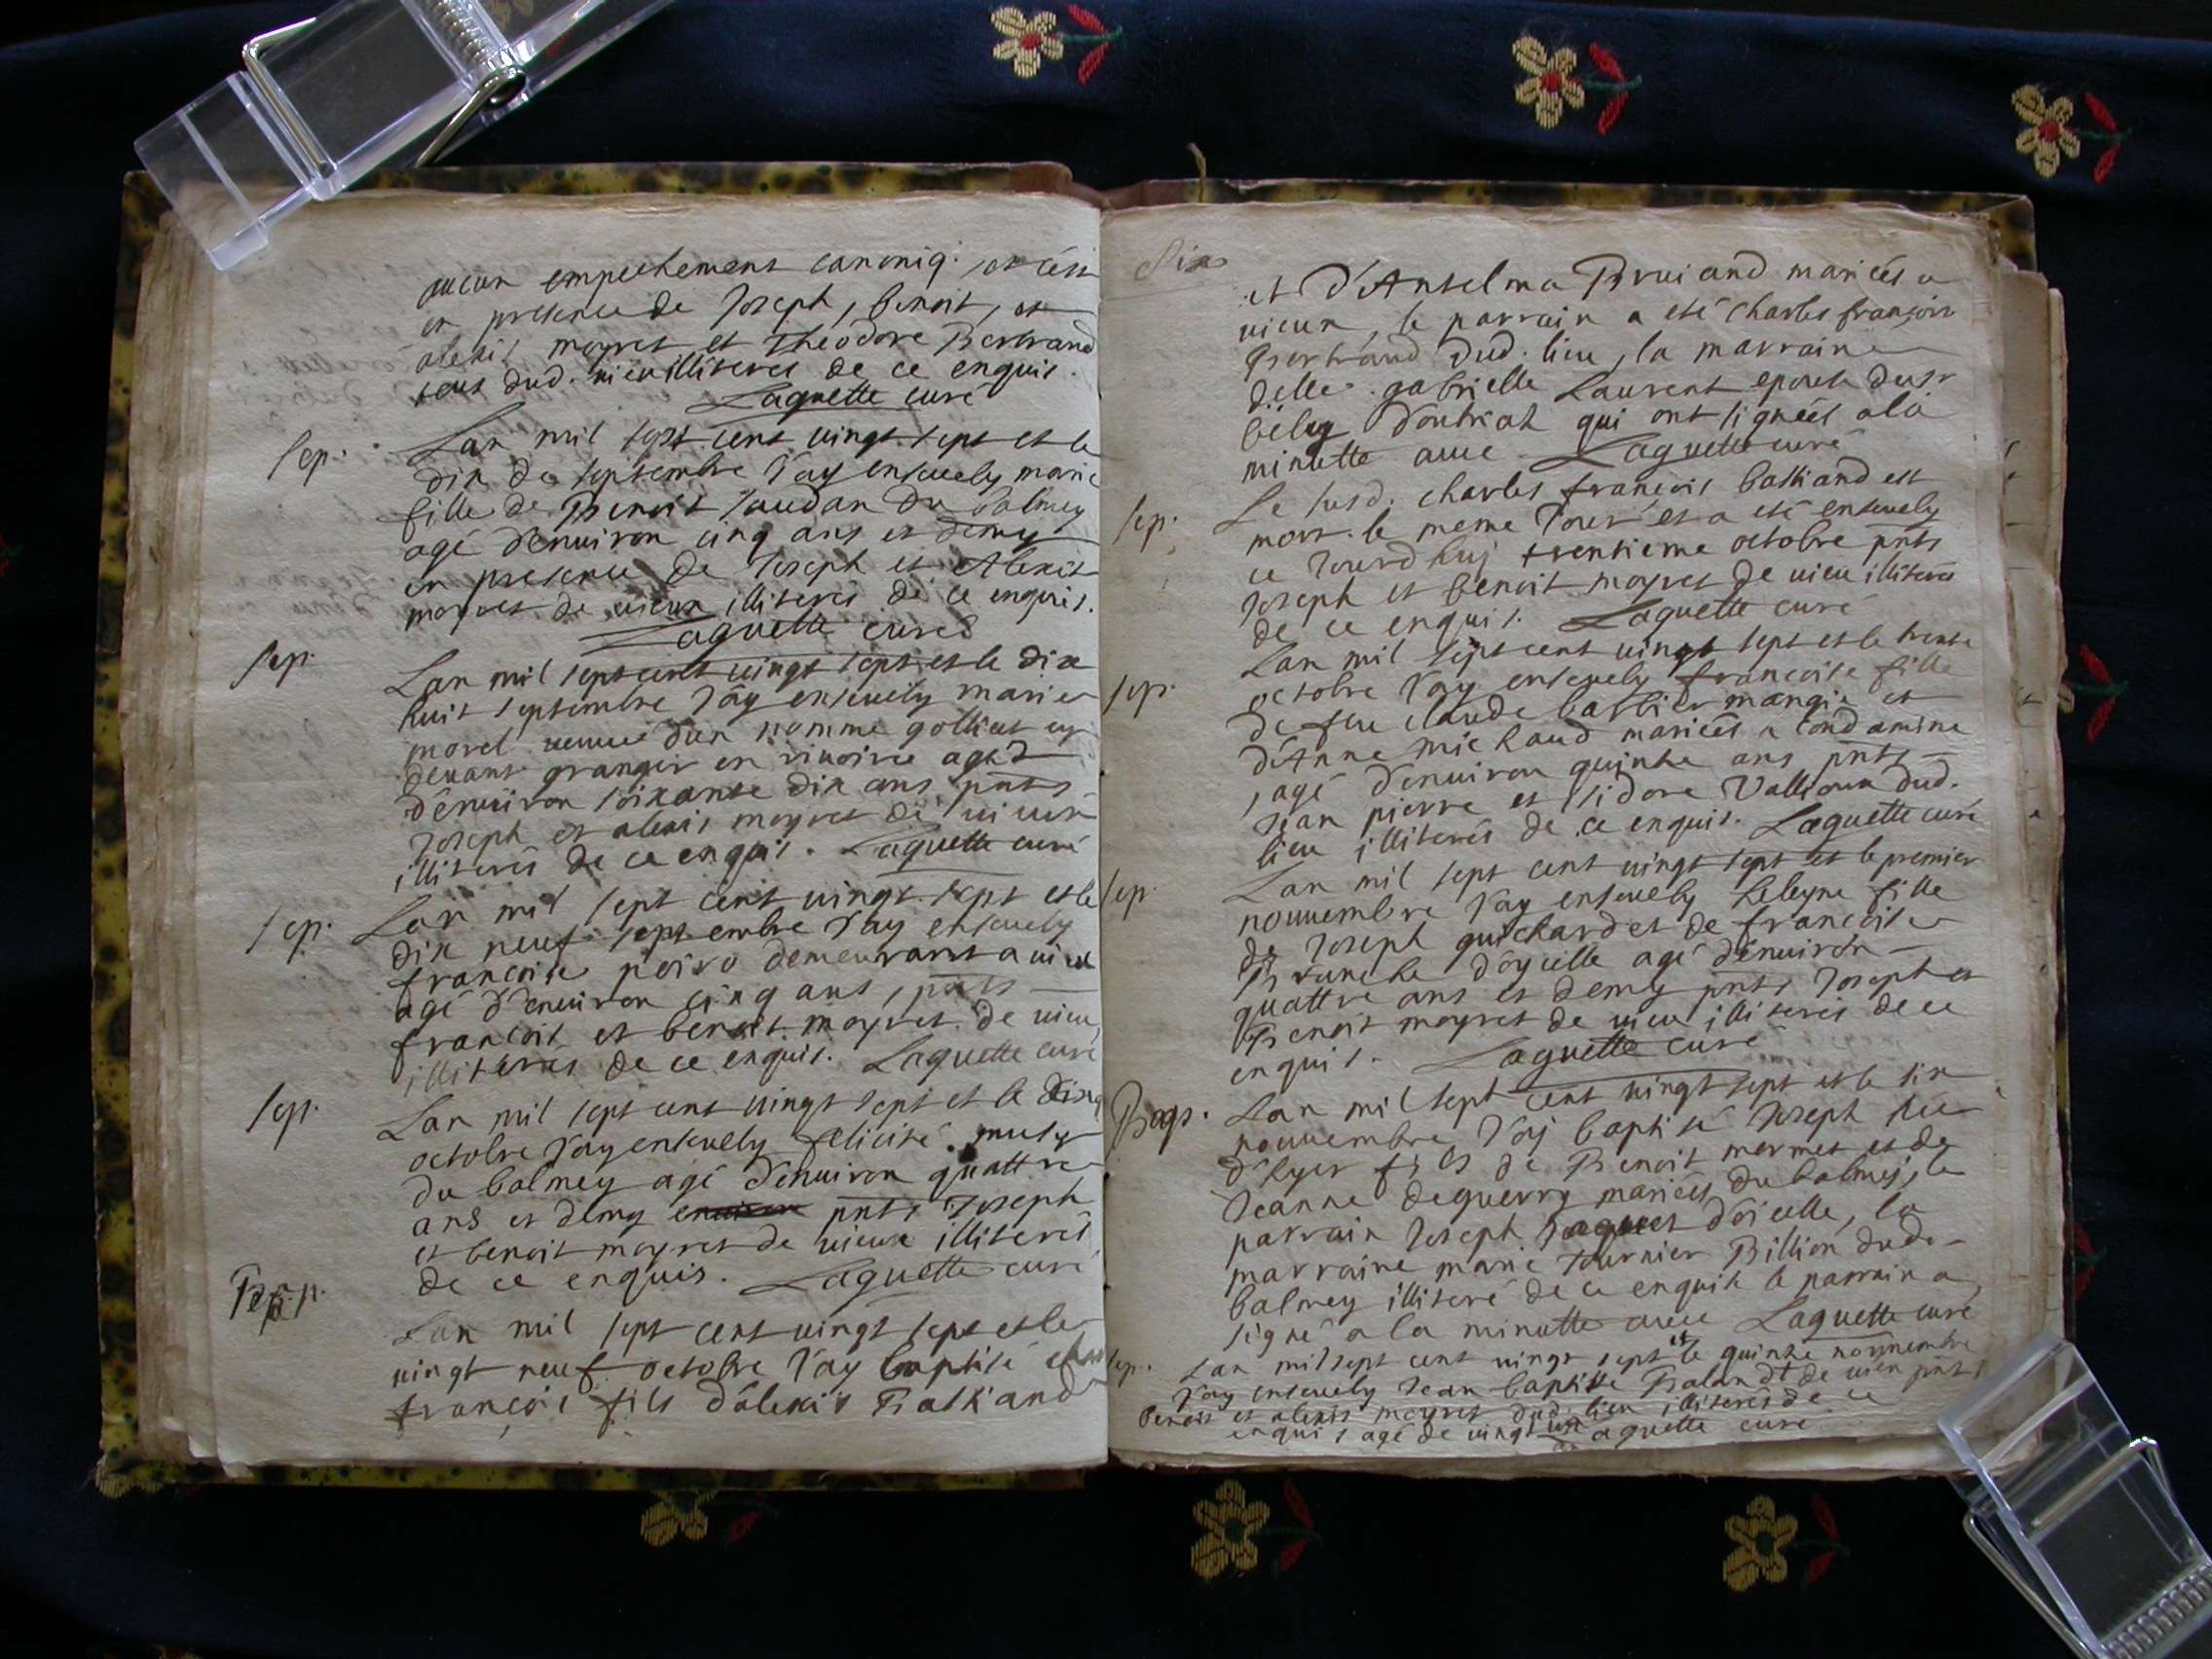 aucun empechement canoniq. et cest
en presence de Joseph, benoit, et
alexis moyret et Theodore Bertrand
tous dud. vieu illiteres de ce enquis.
Laguette curé
Sep. Lan mil sept cent vingt sept et le
dix de septembre J'ay ensevely marie
fille de Benoit Saudan du balmey
agé d'enuiron cinq ans et demy
en presence de Joseph et Alexis
moyret de vieux illiterés de ce enquis.
Laguette curé
Sep. Lan mil sept cent vingt sept et le dix
huit septembre J'ay ensevely marie
morel veuue d'un nommé golliet cy
deuant granger en rivoire agéd
d'enuiron soixante dix ans pnts
Joseph et alexis moyret de vieux
illiterés de ce enquis. Laguette curé
Sep. Lan mil sept cent vingt sept et le
dix neuf septembre J'ay ensevely
francoise demeurant a vieu
agé d'enuiron cinq ans, pnts
francois et benoit moyret de vieu,
illiterés de ce enquis. Laguette curé
Sep. Lan mil sept cent vingt sept et le
octobre J'ay ensevely felicité
du balmey agé d'enuiron quattre
ans et demy pnts Joseph
et benoit moyret de vieux illiterés
de ce enquis. Laguette curé
Bap. Lan mil sept cent vingt sept et le
vingt neuf octobre J'ay baptisé
françois fils d'alexis
Six
et d'Anselma Bruiand mariés a
vieux, le parrain a eté Charles françois
Bertrand dud. lieu, la marraine
delle. gabrielle Laurent epouse du sr
qui ont signées a la
minutte auec Laguette curé
Sep. Le susd. Charles françois est
mort le meme Jour et a eté ensevely
ce Jourdhuj trentieme octobre pnts
Joseph et benoit moyret de vieu illiterés
de ce enquis. Laguette curé
Sep. Lan mil sept cent vingt sept et le trente
octobre J'ay ensevely francoise fille
de feu claude barbier mangie et
d'Anne michaud mariés a Condamine
agé d'enuiron quinze ans pnts
Jean pierre et Isidore dud.
lieu illiterés de ce enquis. Laguette curé
Sep. Lan mil sept cent vingt sept et le premier
nouuembre J'ay ensevely heleyne fille
de Joseph guichard et de francoise
Brunche d'oyselle agé d'enuiron
quattre ans et demy pnts Joseph et
Benoit moyret de vieu illiterés de ce
enquis. Laguette curé
Bap. Lan mil sept cent vingt sept et le six
nouuembre J'aj baptisé Joseph né
d'hyer fils de Benoit mermet et de
Jeanne deguerry mariés du balmej, le
parrain Joseph d'oiselle, la
marraine marie Tournier Billion dud.
balmey illiteré de ce enquise le parrain a
signé a la minutte auec Laguette curé
Sep. Lan mil sept cent vingt sept et le quinze nouuembre
J'ay ensevely Jean baptiste de vieu pnts
Benoit et alexis moyret dud. lieu illiterés de ce
enquis agé de vingt un an Laguette curé